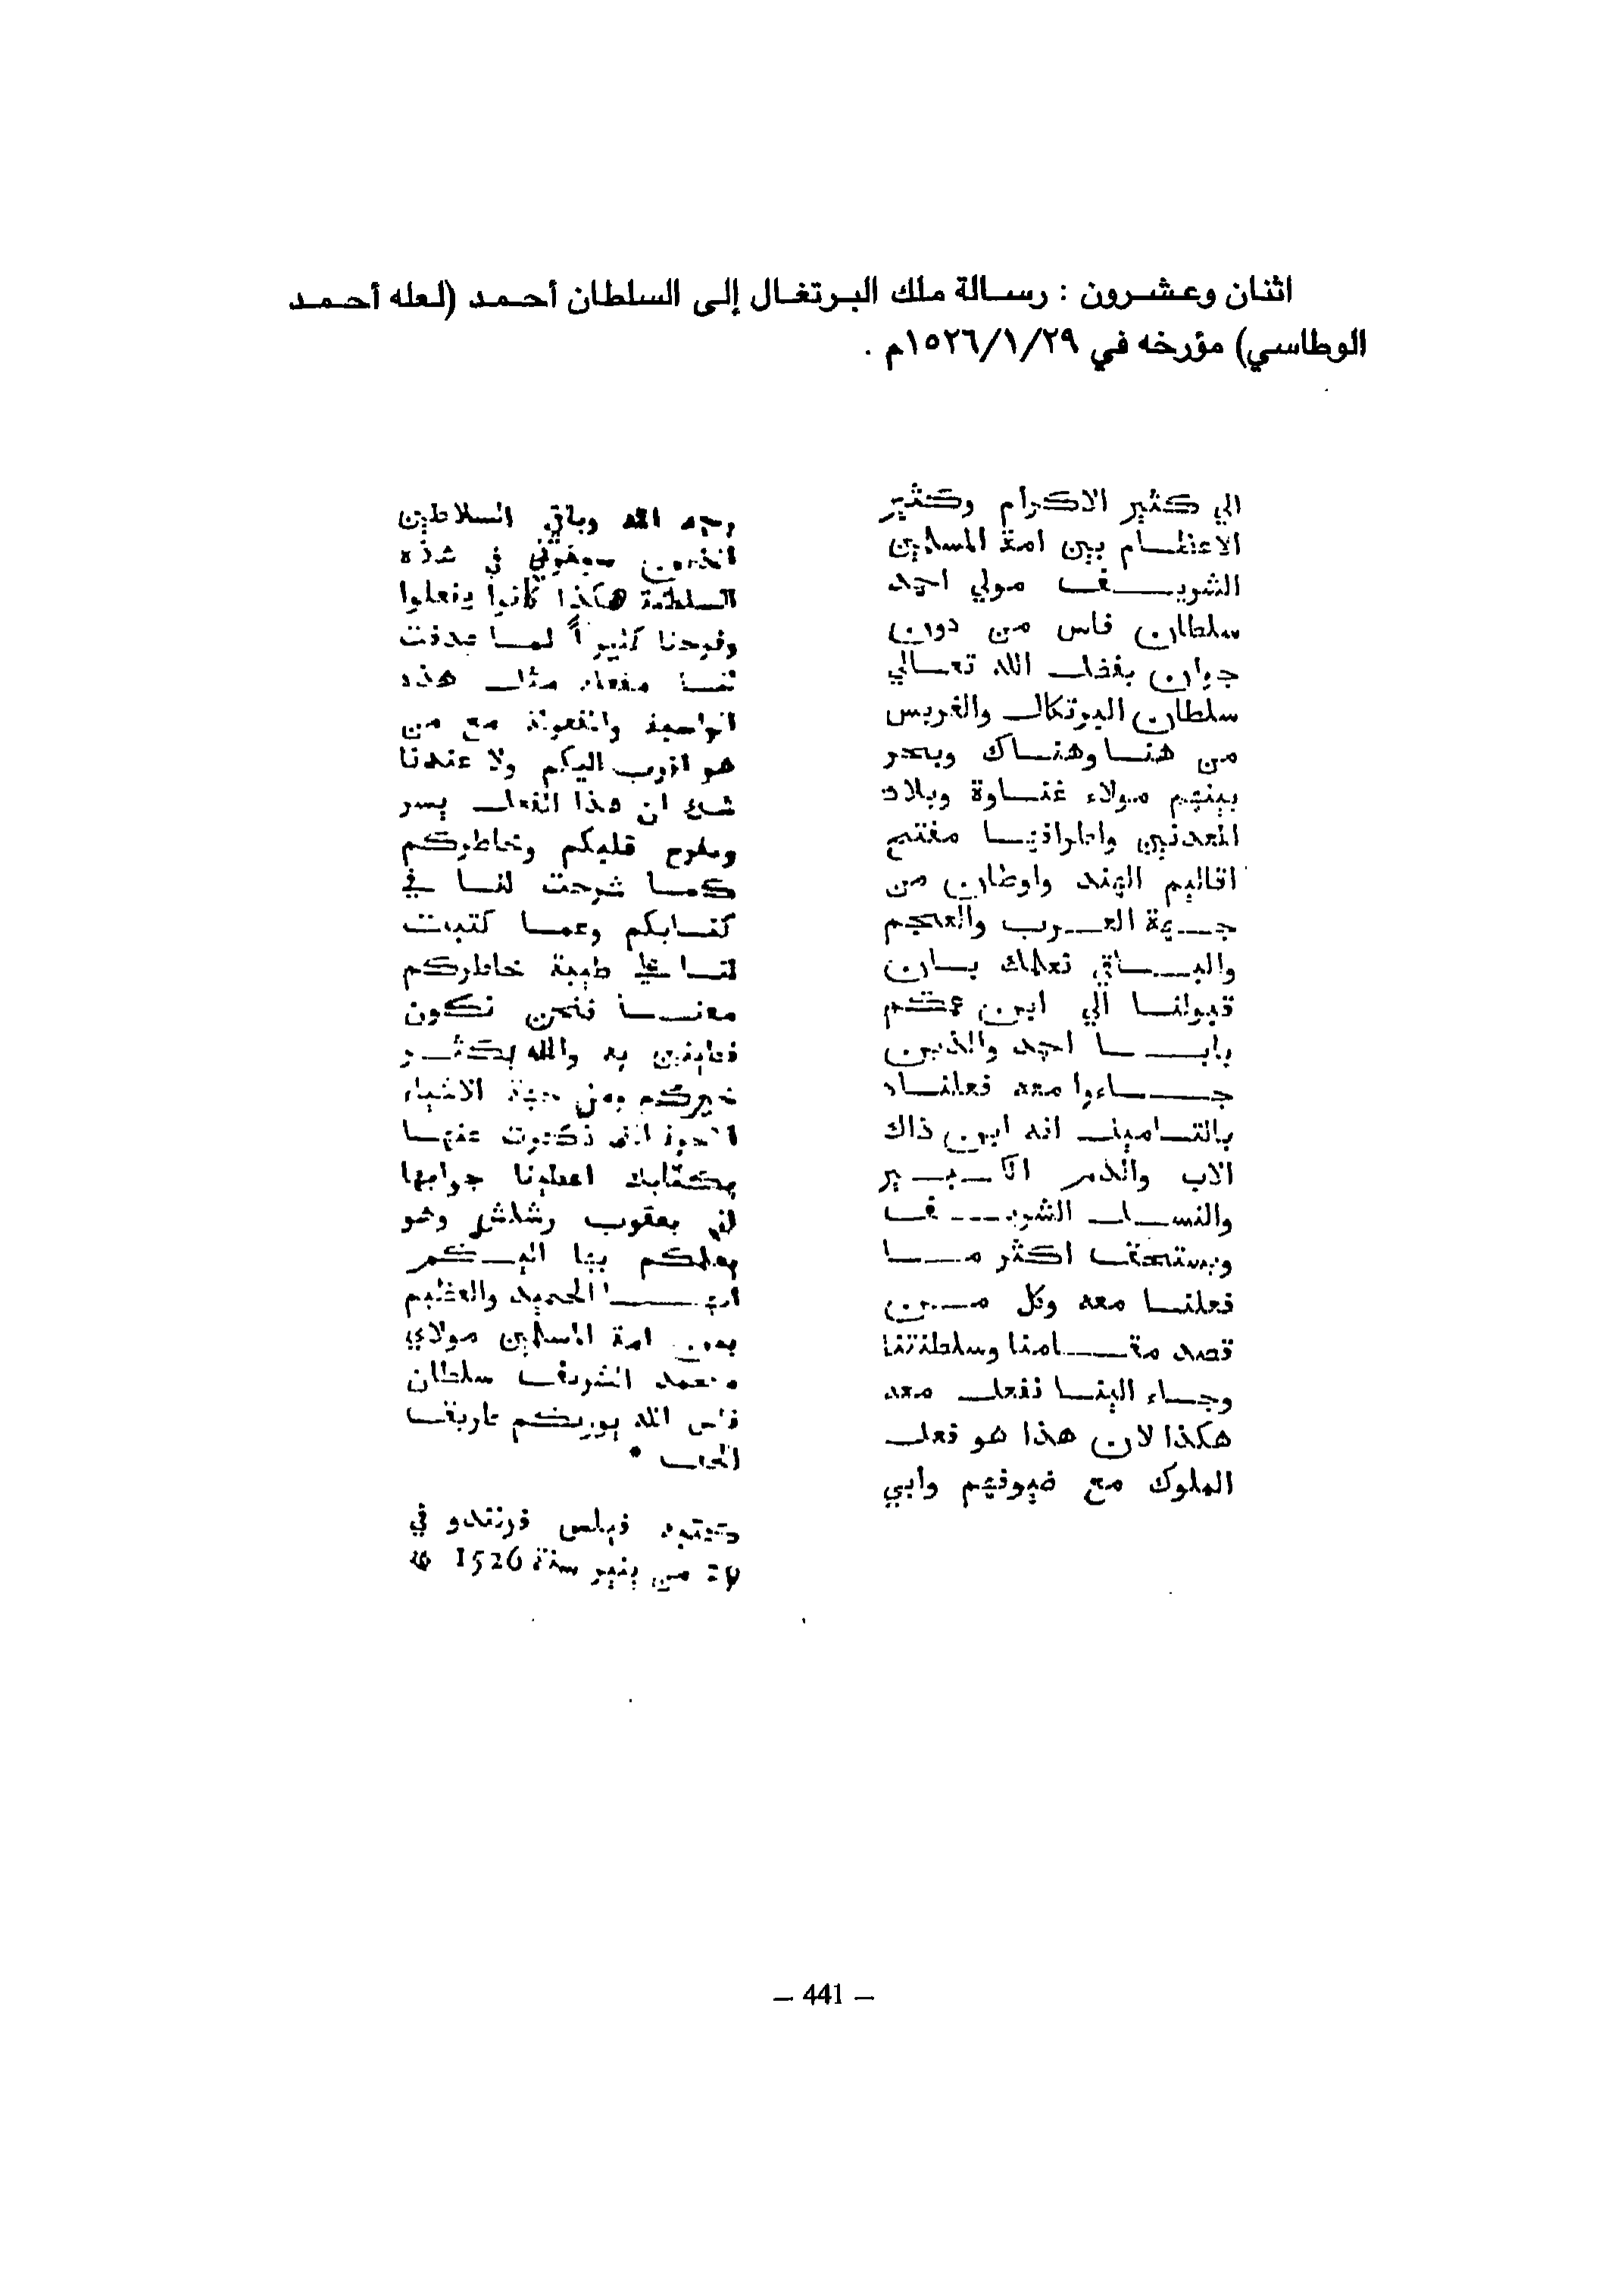 اثنان وعشرون : رسالة ملك البرتغال إلى السلطان أحمد (لعله أحمد
الوطاسي) مؤرخه في ١٥٢٦/١/٢٩م .
الي كثير الاكرام وكثير
الاعظام بين امة المسلمين
الشريف مولي احمد
سلطان فاس من دون
جوان بفضل الله تعالي
سلطان البرتكال والغربس
من هنا وهناك وببحر
بينهم مولاء غناوة وبلاد
المعدنين واطرافها مفتح
اقاليم الهند واوطان من
جهة العرب والعجم
والباقي نعلمك بان
قبولنا الي ابن عمكم
بابا احمد والذين
جاءوا معه فعلناه
بالتامين انه ابن ذاك
الاب والدم الكبير
والنسل الشريف
ويستحق اكثر ما
فعلنا معه وكل من
قصد مقامنا وسلطنتنا
وجاء الينا نفعل معه
هكذا لان هذا هو فعل
الملوك مع ضيوفهم وابي
رحمه الله وباقي السلاطين
الذين سبقوني في هذه
السلطنة هكذا كانوا يفعلوا
وفرحنا كثيراً لما صدفت
لنا مثل هذه
مع من
هو اقرب اليكم ولا عندنا
شك ان هذا الفعل يسر
ويفرح قلبكم وخاطركم
كما شرحت لنا في
كتابكم وعما كتبت
لنا علي طيبة خاطركم
معنا فنحن نكون
به والله يكثر
خيركم ومن جهة الاشياء
ذكرت عنها
بكتابك اعطينا جوابها
الي يعقوب رشالش وهو
يعلمكم بها
الحميد والعظيم
بين امة المسلمين مولاي
محمد الشريف سلطان
فاس الله يوريكم طريق
الحق *
كتبه فيلس فرنندو في
من ينير سنة 1526
– 441 –